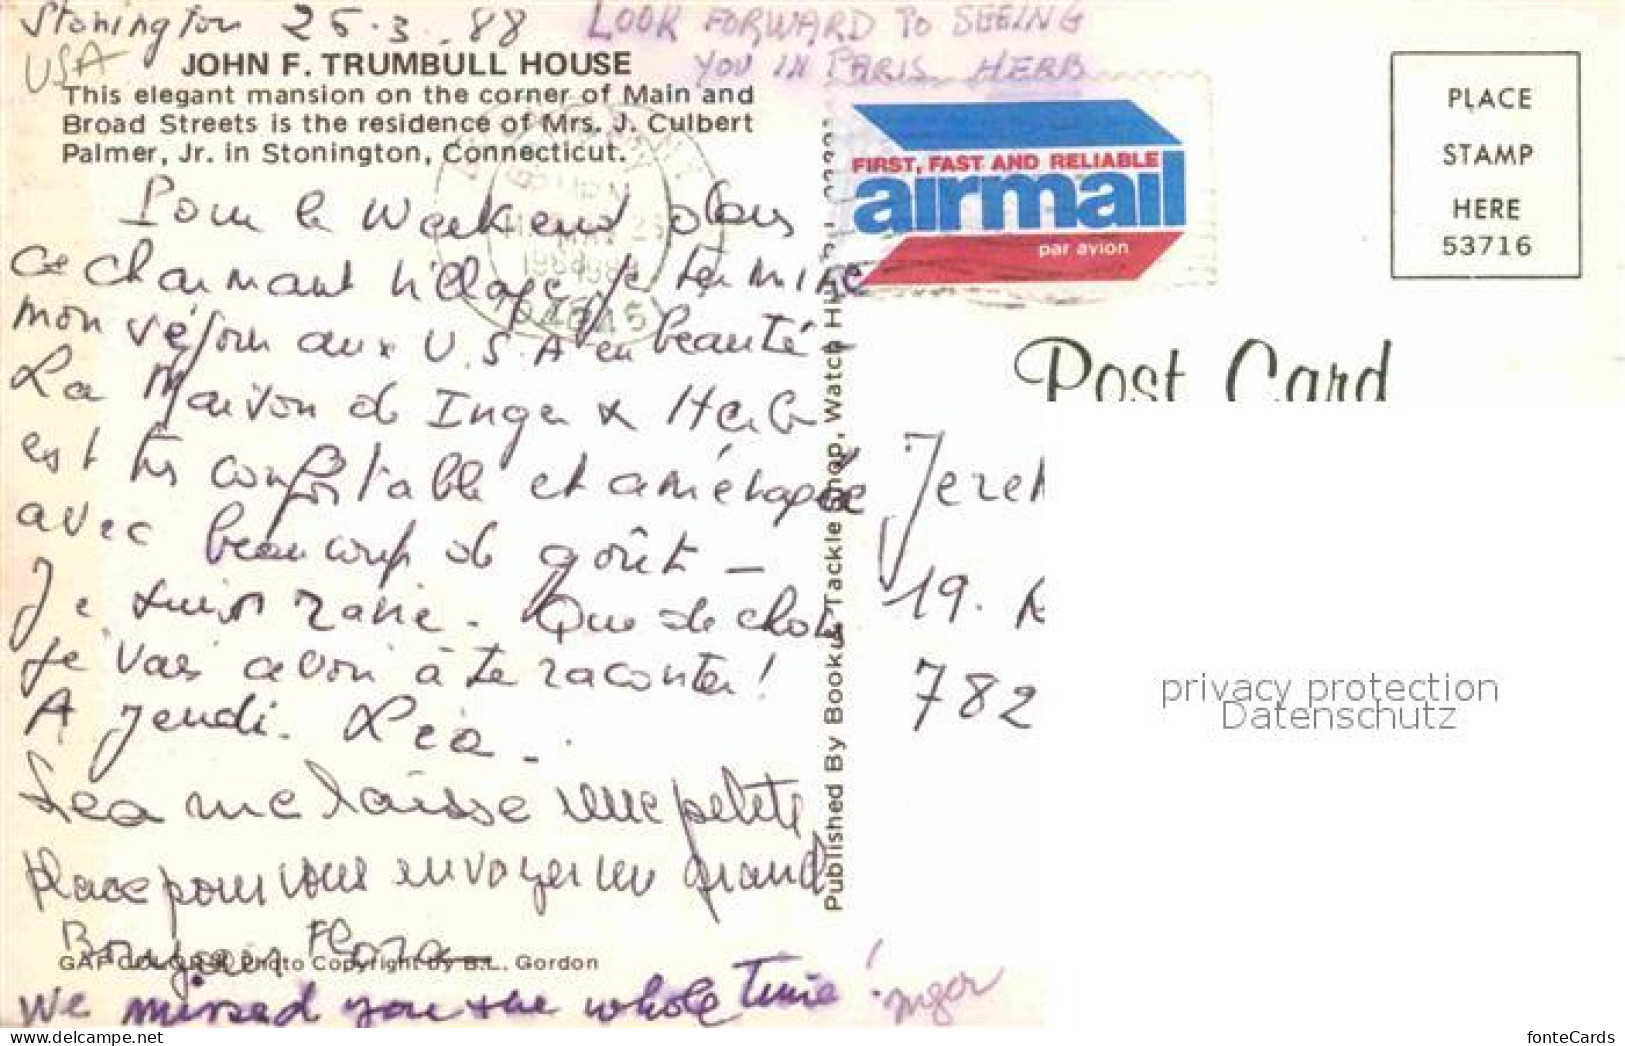 Stonington 25.3.88
USA
LOOK FORWARD TO SEEING
YOU IN PARIS HERB
JOHN F. TRUMBULL HOUSE
This elegant mansion on the corner of Main and
Broad Streets is the residence of Mrs. J. Culbert
Palmer, Jr. in Stonington, Connecticut.
Pour le Weekend dans
ce charmant village je termine
mon séjour aux U.S.A en beauté -
La Maison de Inger & Herb
est très confortable et aménagée
avec beaucoup de goût -
Je suis ravie. Que de choses
je vais avoir à te raconter!
A jeudi. Léa.
Léa me laisse une petite
place pour vous envoyer un grand
Bonjour Flora
GAF COLOR® Photo Copyright by B.L. Gordon
We missed you the whole Time! Inger
Published By Book & Tackle Shop, Watch Hill, R.I.
FIRST, FAST AND RELIABLE
airmail
par avion
PLACE
STAMP
HERE
53716
Post Card
19.
782
privacy protection
Datenschutz
fonteCards